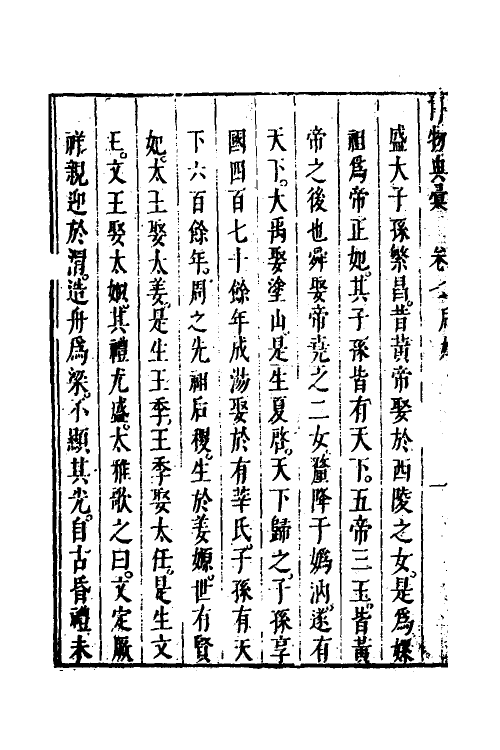 物典彙 卷
盛大子孫繁昌。昔黃帝娶於西陵之女。是爲嫘
祖爲帝正妃。其子孫皆有天下。五帝三王。皆黃
帝之後也舜娶帝堯之二女釐降于嬀汭。遂有
天下。大禹娶塗山是生夏啓。天下歸之。子孫享
國四百七十餘年成湯娶於有莘氏。子孫有天
下六百餘年。周之先祖后稷。生於姜嫄。世有賢
妃。太王娶太姜。是生王季。王季娶太任。是生文
王。文王娶太姒。其禮尤盛。太雅歌之曰。文定厥
祥親迎於渭。造舟爲梁。不顯其光。自古昏禮未